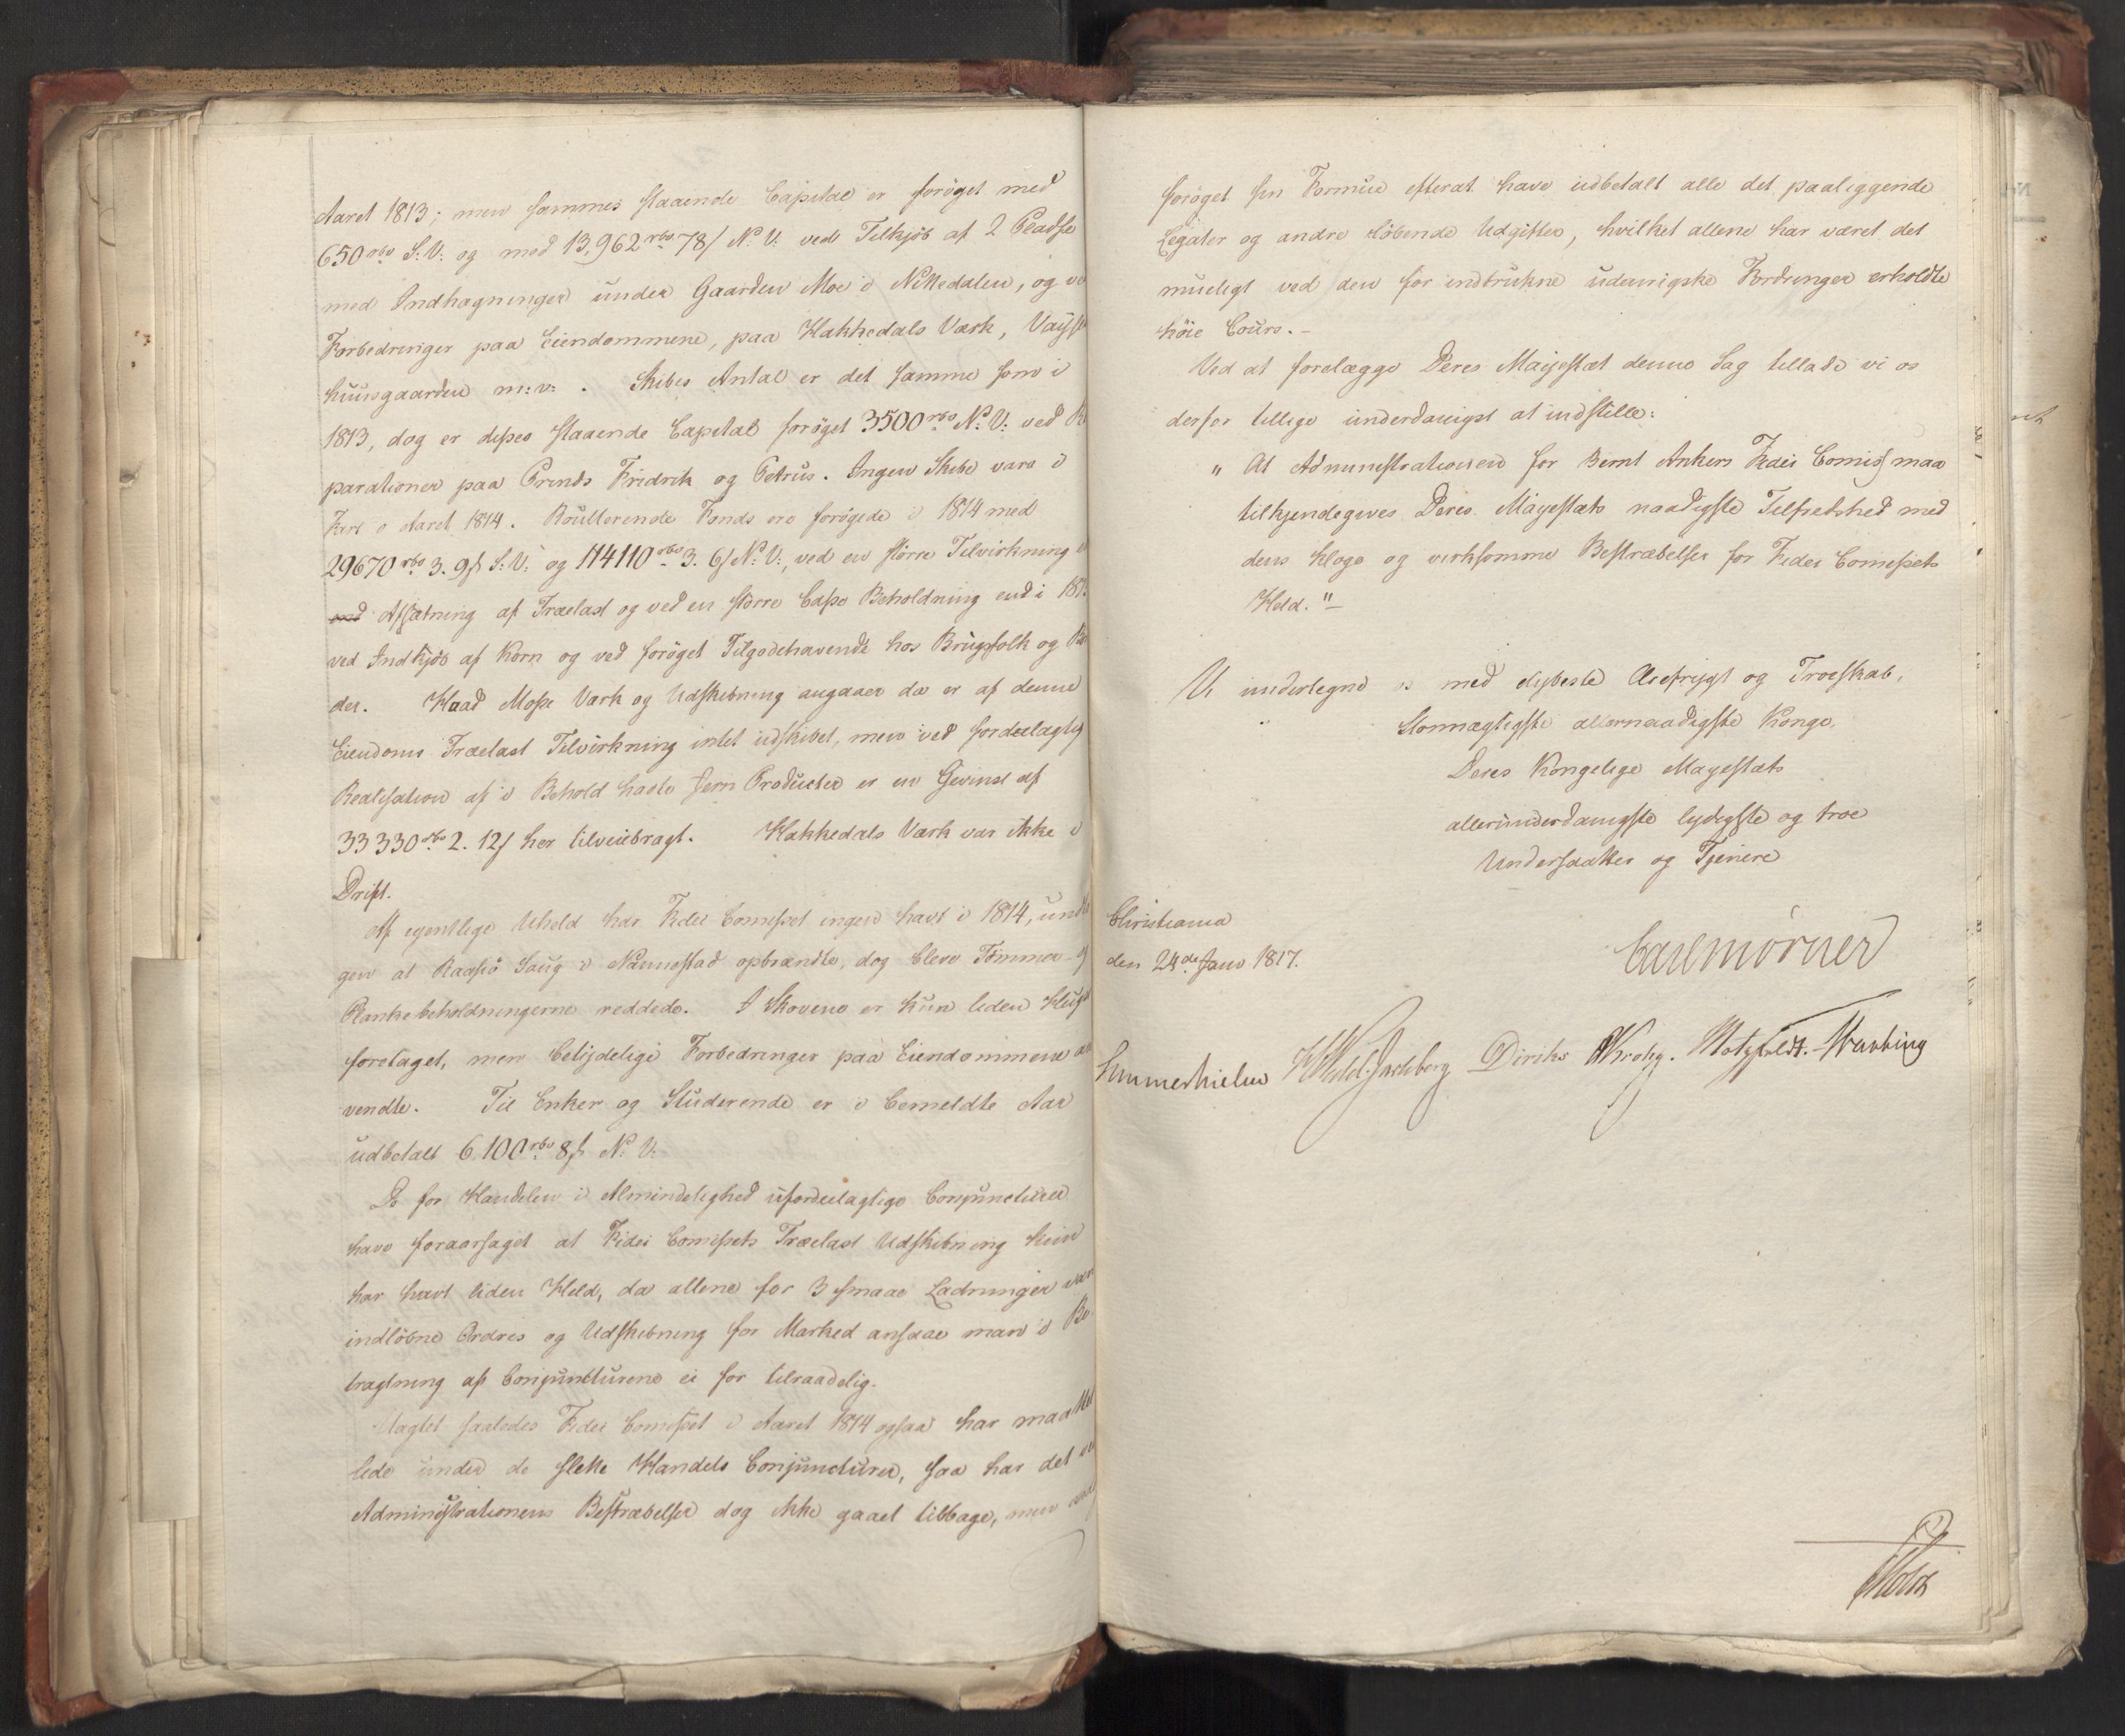 Aaret 1813; men sammes staaende Capital er forøget med
650 rbd S. V. og med 13,962 rbd 78 s N. V. ved Tilkjøb af 2 Pladse
med Indhagninger under Gaarden Moe i Nittedalen, og
Forbedringer paa Eiendommene, paa Hakkedals Værk,
huusgaarden m: v: . Skibes Antal er det samme som i
1813, dog er disses staaende Capital forøget 3500 rbd N. V. ved
parationer paa Prinds Fridrik og Petrus. Ingen Skibe vare i
Fart i Aaret 1814. Roullerende Fonds ere forøgede i 1814 med
29670 rbd 3. 9 s S. V. og 114110 rbd 3. 6 s N. V., ved en større Tilvirkning
Afsætning af Trælast og ved en større Casse Beholdning end i 181
ved Indkjøb af Korn og ved forøget Tilgodehavende hos Brugsfolk og
der. Hvad Mosse Værk og Udskibning angaaer da er af denne
Eiendoms Trælast Tilvirkning intet udskibet, men ved fordeelagtig
Realisation af i Behold havte Jern Producter er en Gevinst af
33330 rbd 2. 12 s her tilveiebragt. Hakkedals Værk var ikke i
Drift.
Af egentlige Uheld har Fidei Comisset ingen havt i 1814, und
gen at Raasiø Saug i Nannestad opbrændte, dog bleve Tømmer- og
Plankebeholdningerne reddede. I Skovene er kun liden Hugst
foretaget, men betydelige Forbedringer paa Eiendommene an
vendte. Til Enker og Studerende er i bemeldte Aar
udbetalt 6,100 rbd 8 s N. V.
De for Handelen i Almindelighed ufordeelagtige Conjuncturer
have foraarsaget at Fidei Comissets Trælast Udskibning kun
har havt liden Held, da allene for 3 smaae Ladninger vare
indløbne Ordres og Udskibning for Marked ansaae man i Be
tragtning af Conjuncturene ei for tilraadelig.
Uagtet saaledes Fidei Comisset i Aaret 1814 ogsaa har maattet
lide under de slette Handels Conjuncturer, saa har det ved
Administrationens Bestræbelser dog ikke gaaet tilbage, men
forøget sin Formue efterat have udbetalt alle det paaliggende
Legater og andre løbende Udgifter, hvilket allene har været det
mueligt ved den for inddrukne udenrigske Fordringer erholdte
høie Cours. -
Ved at forelægge Deres Majestæt denne Sag tillade vi os
derfor tillige underdanigst at indstille:
" At Administrationen for Bernt Ankers Fidei Comiss maa
tilkjendegives Deres Majestæts naadigste Tilfredshed med
dens kloge og virksomme Bestræbelser for Fidei Comissets
Held. " -
Vi undertegne os med dybeste Ærefrygt og Troeskab,
Stormægtigste allernaadigste Konge,
Deres Kongelige Majestæts
allerunderdanigste lydigste og troe
Undersaatter og Tjenere
Christiania
den 24de Janv 1817.
Carl Mörner
Sommerhielm Diriks Krohg. Motzfeldt.
Holst